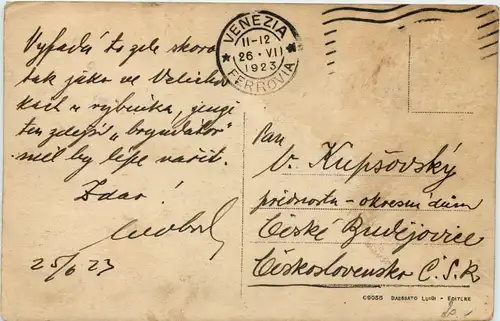 VENEZIA
11-12
26 · VI
1923
FERROVIA
Vypadá to zde skoro
tak jako ve
kách u rybníka, jenže
ten zdejší „
měl by lépe vařit.
Zdar!
25/6 23
Pan
V. Kupšovský
přednosta - okresní dům
České Budějovice
Československo Č.S.R
C9055 DAESSATO LUIGI - EDITORE
20.-